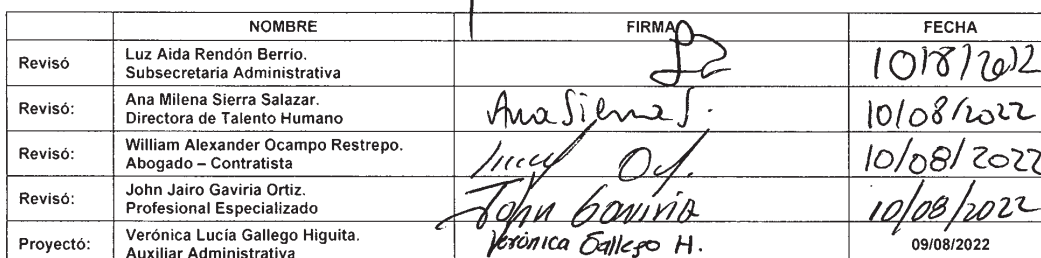 NOMBRE FIRMA FECHA
Revisó Luz Aida Rendón Berrío.
Subsecretaria Administrativa 10/8/2022
Revisó: Ana Milena Sierra Salazar.
Directora de Talento Humano Ana Sierra S. 10/08/2022
Revisó: William Alexander Ocampo Restrepo.
Abogado – Contratista 10/08/2022
Revisó: John Jairo Gaviria Ortiz.
Profesional Especializado John Gaviria 10/08/2022
Proyectó: Verónica Lucía Gallego Higuita.
Auxiliar Administrativa Verónica Gallego H. 09/08/2022